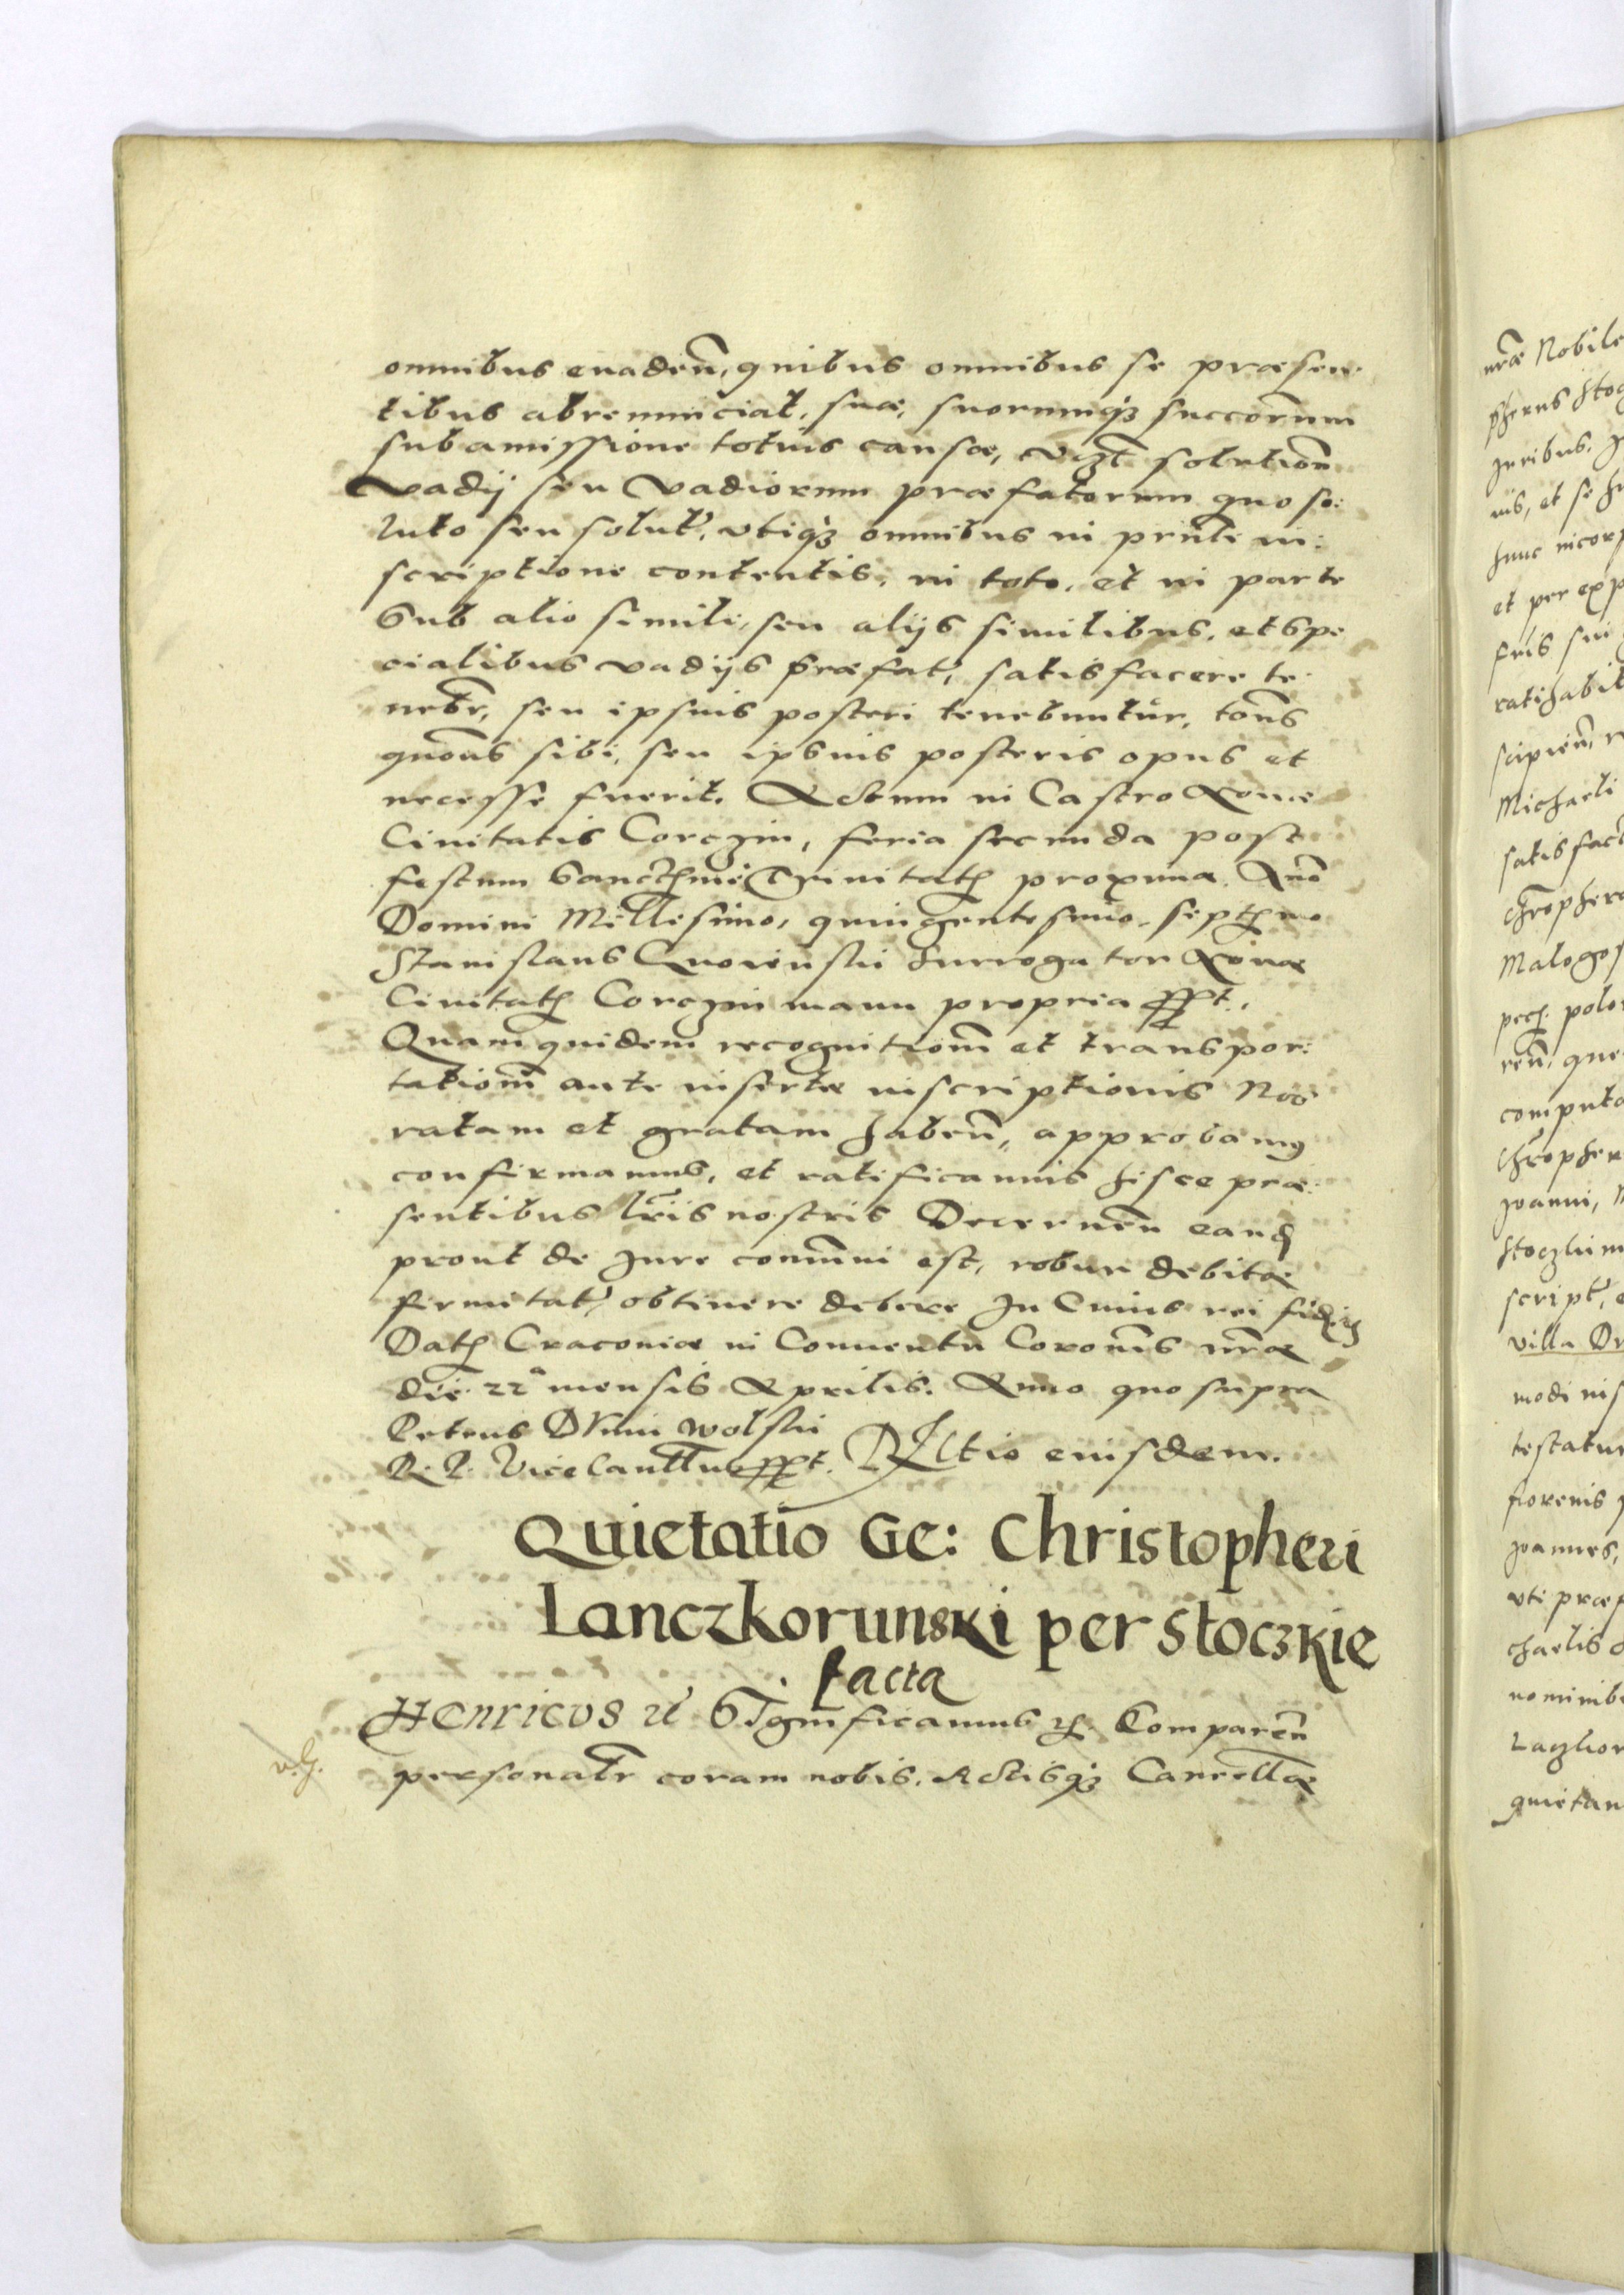 omnibus euaden̄, quibus omnibus se præsen-
tibus abrenunciat, suæ, suorumq3 succorūm
sub amissione totius causæ, vzt solution̄
vadij seu vadiorum præfatorum quo so:
luto seu solut', vtiq3 omnibus in pr̄nti in:
scriptione contentis, in toto, et in parte
Sub alio simili, seu alijs similibus, et spe
cialibus vadijs præfat', satisfacere te
nebr̄, seu ipsius posteri tenebuntur, to
quo sibi, seu ipsius posteris opus et
necesse fuerit. Actum in Castro
Ciuitatis Corczin, feria secunda post
festum Trinitat proxima Anō
Domini Millesimo, quingentesimo,
Stanislaus Surrogator
Ciuitat Corczin manu propria sspt.
Quam quidem recognitiom̄ et transpor:
tatiom̄ ante insertæ inscriptionis Nos
ratam et gratam haben̄, approbamus
confirmamus, et ratificamus hisce præ:
sentibus lr̄is nostris Decernen̄ eand
prout de Jure com̄uni est, robur debitæ
firmitat' obtinere debere In Cuius rei fid
Dat Cracouiæ in Conuentu Coron̄is nr̄æ
die 22a mensis Aprilis. Anno quo supra
Petrus Dunin Wolski
R. P. Vicecan sspt. Rltio eiusdem.
Quietatio Ge: Christopheri
Lanczkorunski per Stoczkie
facta
Henricus Significamus Comparen̄
v. g. personalr̄ coram nobis, Actisq3 Cancellæ
nr̄æ Nobile
Juribus,
nis, et se
hunc incorp
et per exp
ratihabit
Michaeli
satisfact
Malogos
polo
ren̄, que
computa
Joanni,
script'
villa Dr
modi ins
testatur
florenis
Joannes,
vti præf
chaelis
nominib
quietan